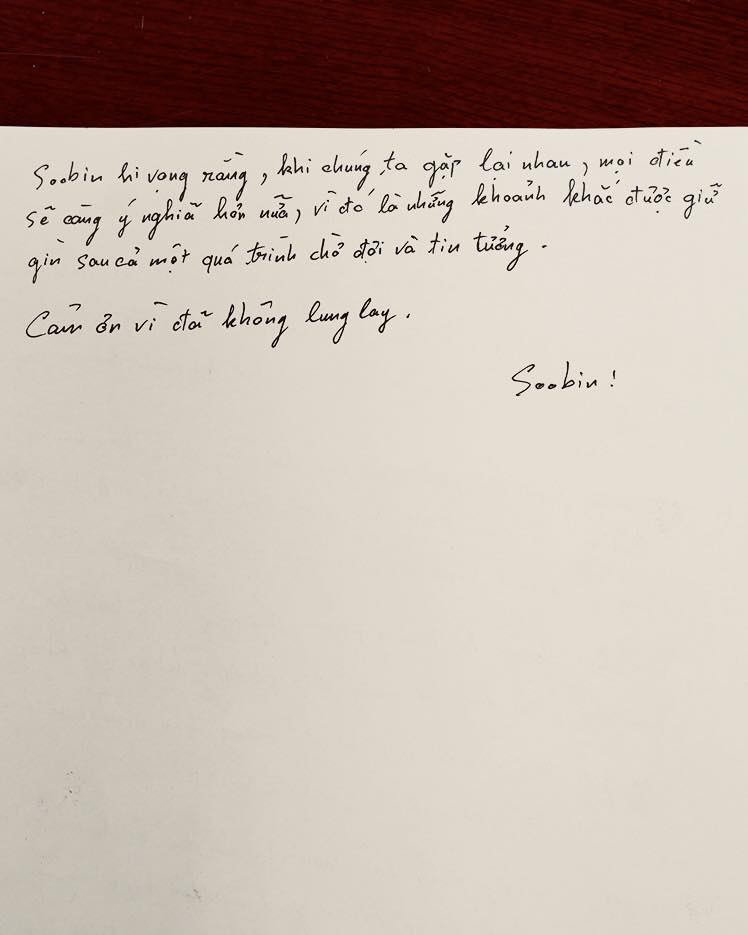 Soobin hi vọng rằng, khi chúng ta gặp lại nhau, mọi điều
sẽ càng ý nghĩa hơn nữa, vì đó là những khoảnh khắc được giữ
gìn sau cả một quá trình chờ đợi và tin tưởng.
Cảm ơn vì đã không lung lay.
Soobin!